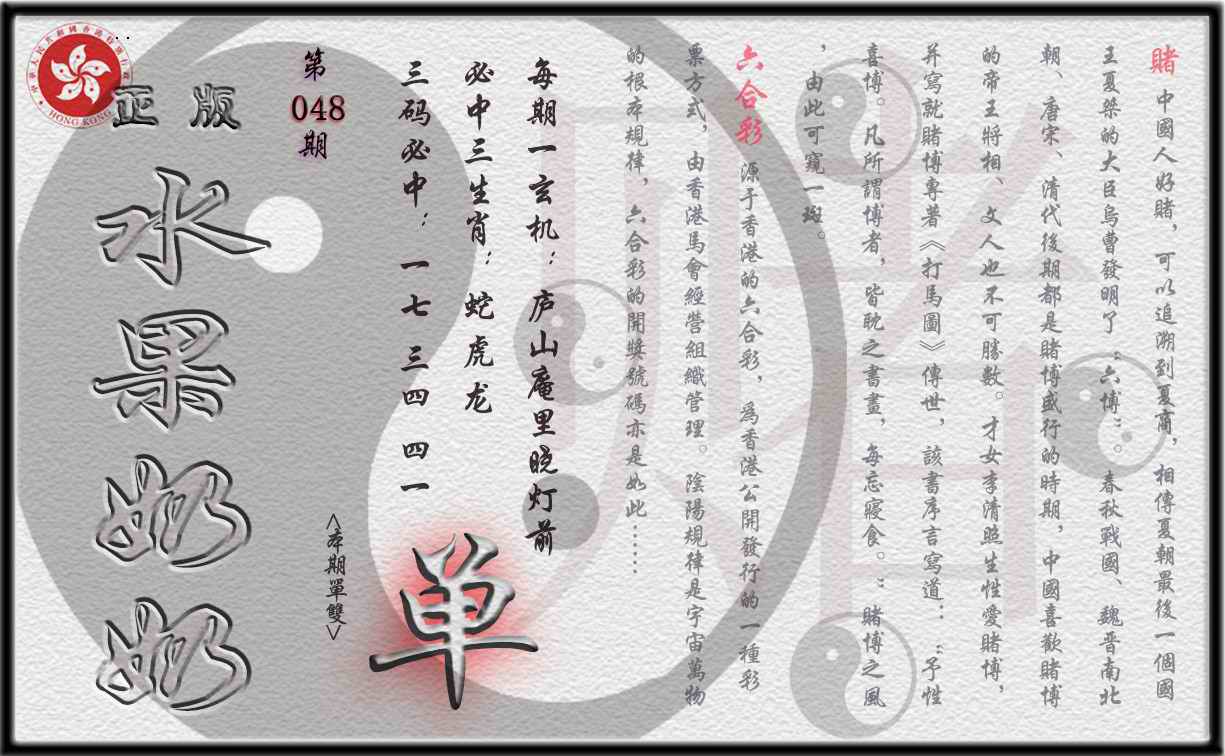 賭 中國人好賭，可以追溯到夏商，相傳夏朝最後一個國
王夏桀的大臣烏曹發明了“六博”。春秋戰國、魏晋南北
朝、唐宋、清代後期都是賭博盛行的時期，中國喜歡賭博
的帝王將相、文人也不可勝數。才女李清照生性愛賭博，
并寫就賭博專著《打馬圖》傳世，該書序言寫道：“予性
喜博。凡所謂博者，皆耽之書晝，每忘寢食。”賭博之風
，由此可窺一斑。
六合彩 源于香港的六合彩，爲香港公開發行的一種彩
票方式，由香港馬會經營組織管理。陰陽規律是宇宙萬物
的根本規律，六合彩的開獎號碼亦是如此……
每期一玄机：庐山庵里晓灯前
必中三生肖：蛇虎龙
三码必中：一七 三四 四一
单
<本期單雙>
第
048
期
正版
水果奶奶
中華人民共和國香港特別行政區
HONG KONG